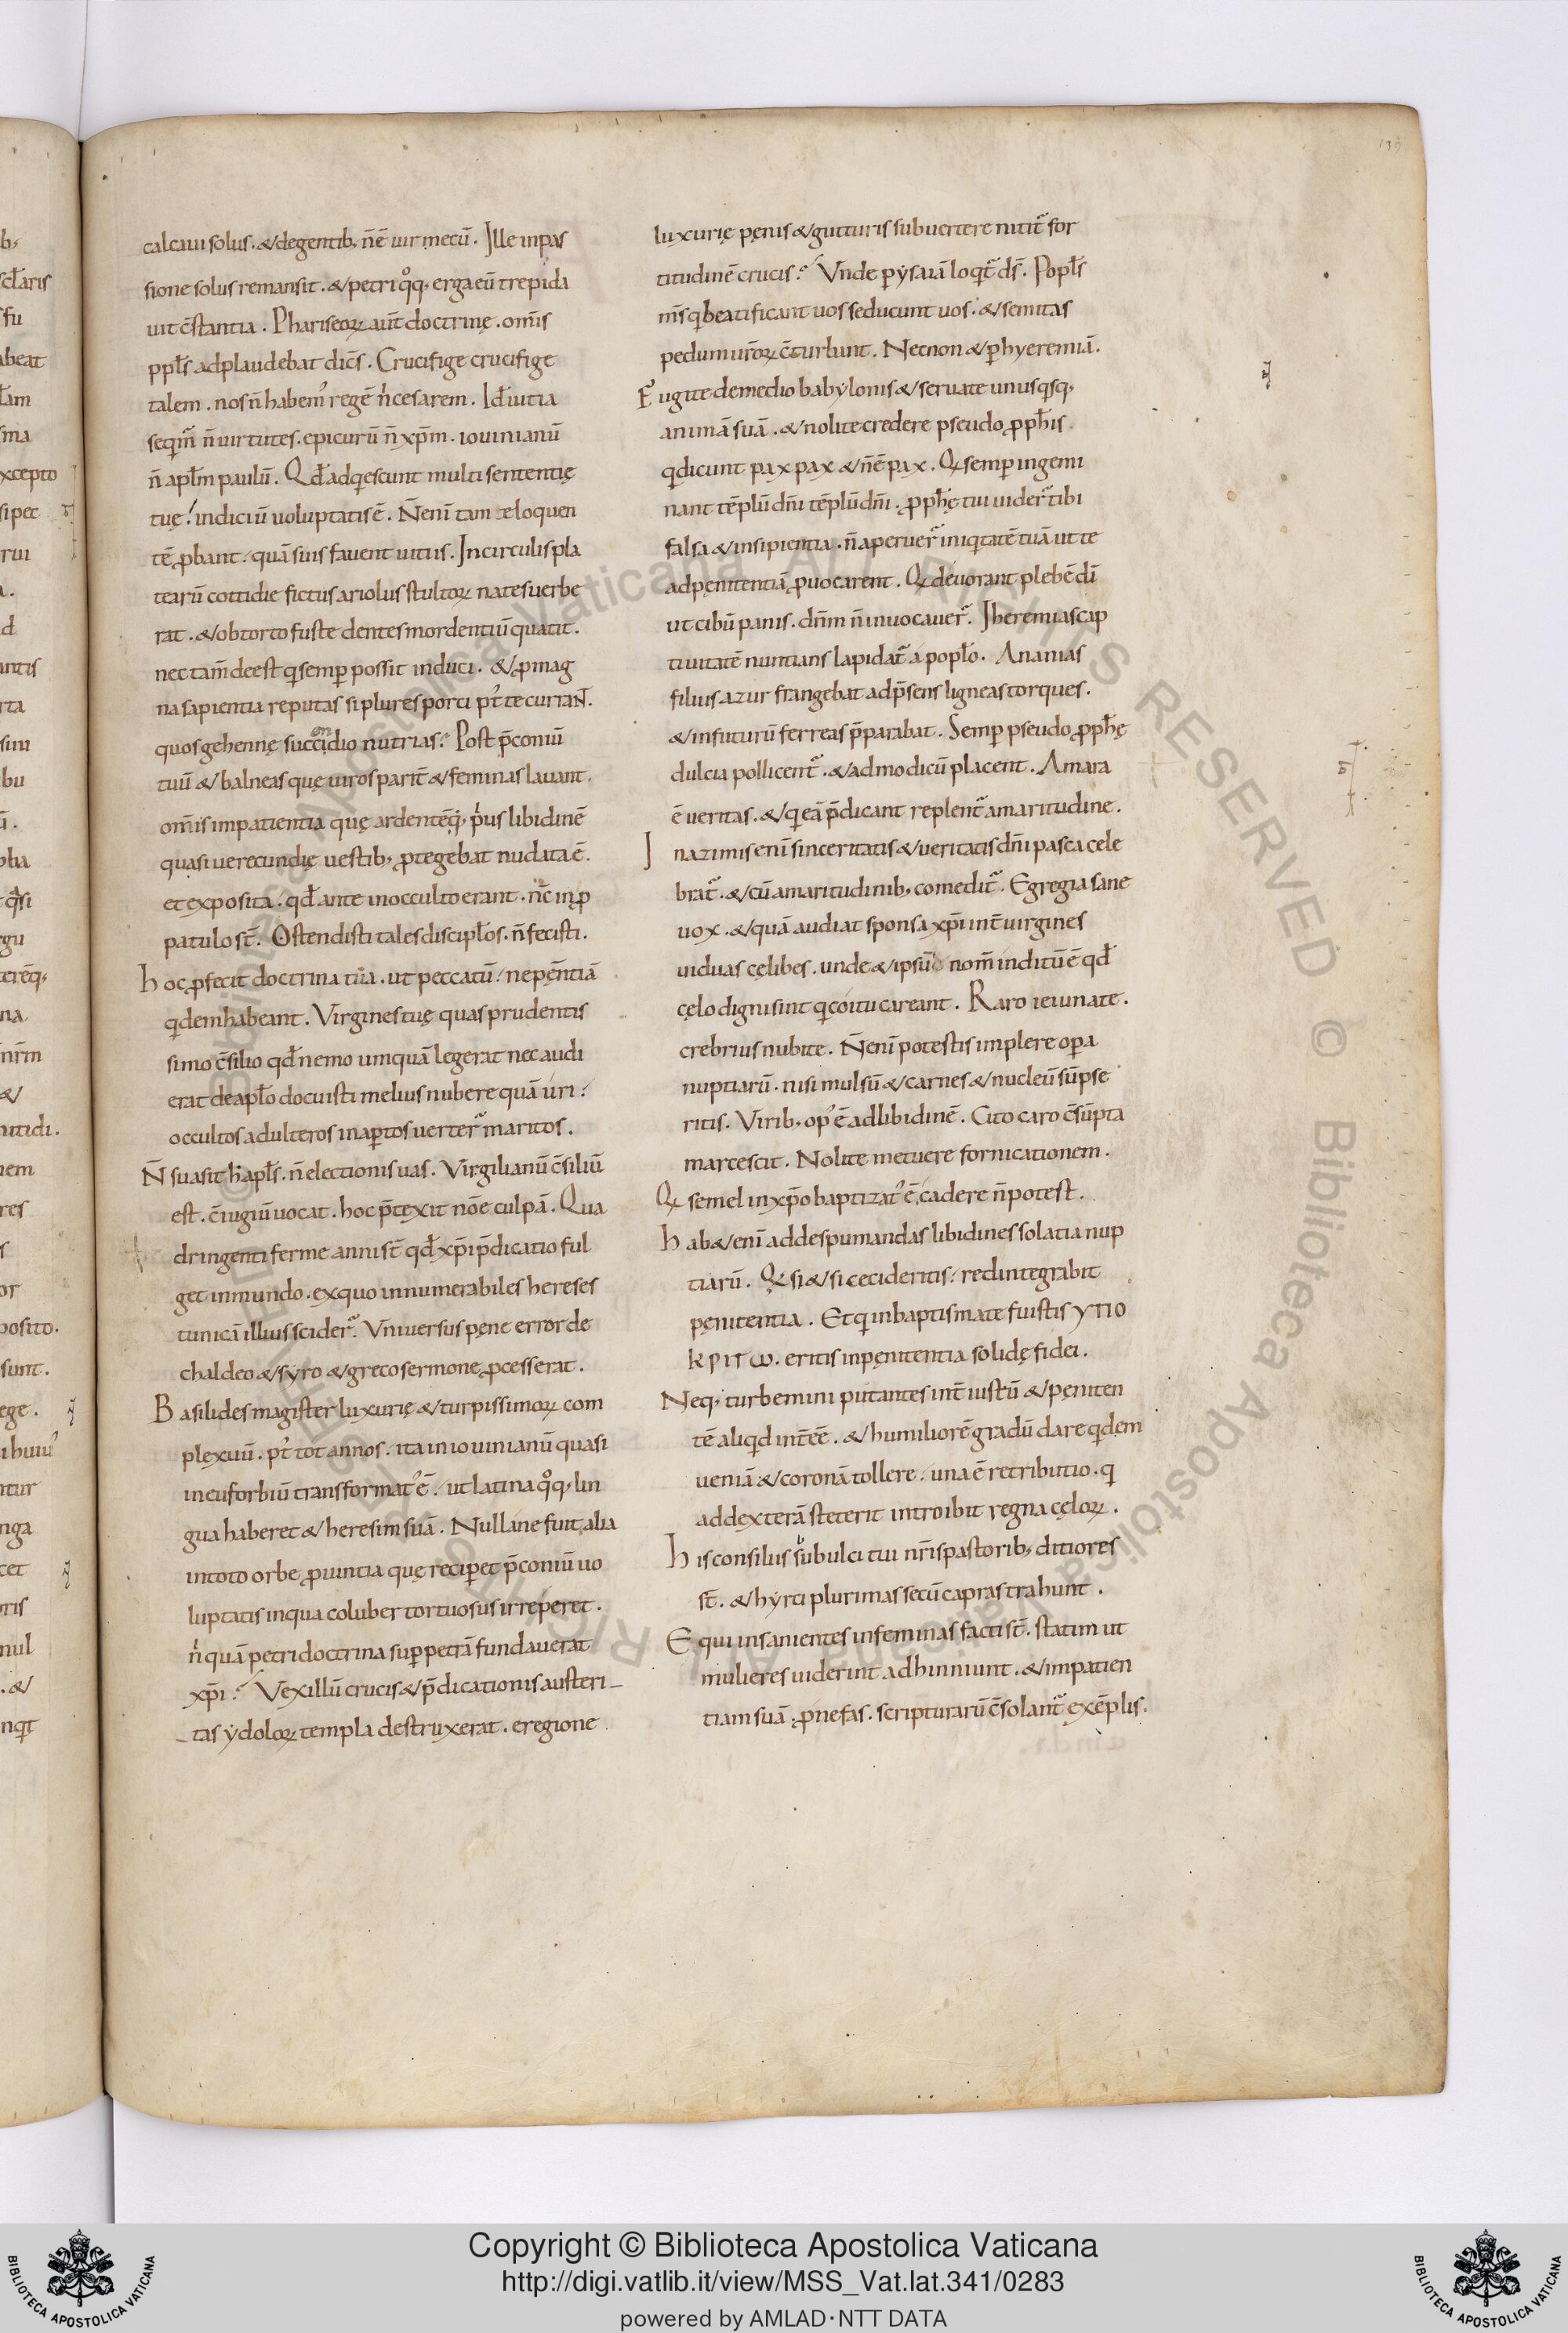 139
calcaui solus. & degentib; n̄ ē uir mecū. Ille in pas
sione solus remansit. & petri q̊q; erga eū trepida
uit c̄stantia. Phariseoꝝ aut̄ doctrinę. om̄is
ppl̄s adplaudebat dic̄s. Crucifige crucifige
talem. nos n̄ habem᾽ regē n̍ cesarem. Id ē uitia
seqm̄ n̄ uirtutes. epicurū n̄ xp̄m. iouinianū
n̄ apl̄m paulū. Qd̄ adqescunt multi sententię
tuę! indiciū uoluptatis ē. N̄ enī tam te loquen
tē ꝓbant. quā suis fauent uitiis. In circulis pla
tearū cottidie fictus ariolus stultoꝝ nates uerbe
rat. & obtorto fuste dentes mordentiū quatit.
nec tam̄ deest q semꝑ possit induci. & ꝓ mag
na sapientia reputas si plures porci p᾽t te currant.
quos gehennę succidio nutrias? Post p̄coniū
tuū & balneas quę uiros parit̄ & feminas lauant.
om̄is impatientia quę ardentē q; p̍us libidinē
quasi uerecundię uestib; ꝓtegebat nudata ē.
et exposita. qd̄ ante in occulto erant. n̄c in ꝓ
patulo st̄. Ostendisti tales discipl̄os. n̄ fecisti.
hoc ꝓfecit doctrina tua. ut peccatū. ne pęn̄tiā
qdem habeant. Virgines tuę quas prudentis
simo c̄silio qd̄ nemo umquā legerat nec audi
erat de apl̄o docuisti melius nubere quā uri.
occultos adulteros in aꝑtos uerter̄ maritos.
N̄ suasit h̍ apl̄s. n̄ electionis uas. Virgilianū c̄siliū
est. c̄iugiū uocat. hoc p̄texit nōe culpā. Qua
dringenti ferme anni st̄ qd̄ xp̄i p̄dicatio ful
get in mundo. ex quo innumerabiles hereses
tunicā illius scider̄. Vniuersus pene error de
chaldeo & syro & greco sermone ꝓcesserat.
Basilides magister luxurię & turpissimoꝝ com
plexuū. p᾽t tot annos. ita in iouinianū quasi
in euforbiū transformat᾽ ē. ut latina q̊q; lin
gua haberet & heresim suā. Nullane fuit alia
in toto orbe ꝓuintia quę reciꝑet p̄coniū uo
luptatis in qua coluber tortuosus irreperet.
n̍ quā petri doctrina suꝑ petrā fundauerat
xp̄i? Vexillū crucis & p̄dicationis austeri
tas ydoloꝝ templa destruxerat. e regione
luxurię penis & gutturis subuertere nitit̄ for
titudinē crucis? Vnde ꝑ ysaiā loqt̄ ds̄. Popl̄s
m̄s q beatificant uos seducunt uos. & semitas
pedum ur̄oꝝ c̄turbant. Necnon & ꝑ hyeremiā.
Fugite de medio babylonis & seruate unusqsq;
animā suā. & nolite credere pseudo ꝓph̄is.
q dicunt pax pax & n̄ ē pax. Q semꝑ ingemi
nant tēplū dn̄i tēplū dn̄i. ꝓph̄ę tui uider̄ tibi
falsa & insipientia. n̄ aperuer̄ iniqtatē tuā ut te
ad penitentiā ꝓuocarent. Q deuorant plebē dī
ut cibū panis. dn̄m n̄ inuocauer̄. Iheremias cap
tiuitatē nuntians lapidat̄ a popl̄o. Ananias
filius azur frangebat ad p̄sens ligneas torques.
& in futurū ferreas p̄parabat. Semꝑ pseudo ꝓph̄ę
dulcia pollicent̄. & ad modicū placent. Amara
ē ueritas. & q eā p̄dicant replent̄ amaritudine.
In azimis enī sinceritatis & ueritatis dn̄i pasca cele
brat̄. & cū amaritudinib; comedit̄. Egregia sane
uox. & quā audiat sponsa xp̄i int̄ uirgines
uiduas cęlibes. unde & ipsū nom̄ inditū ē qd̄
cęlo digni sint q coitu careant. Raro ieiunate.
crebrius nubite. N̄ enī potestis implere oꝑa
nuptiarū. nisi mulsū & carnes & nucleū sūpse
ritis. Virib; op᾽ ē ad libidinē. Cito caro c̄sūpta
marcescit. Nolite metuere fornicationem.
Q semel in xp̄o baptizat᾽ ē, cadere n̄ potest.
hab& enī ad despumandas libidines solatia nup
tiarū. Q si & si cecideritis. redintegrabit
pęnitentia. Et q in baptismate fuistis ΥΠΟ
ΚΡΙΤω. eritis in pęnitentia solidę fidei.
Neq; turbemini putantes int̄ iustū & pęniten
tē aliqd int̄eē. & humiliorē gradū dare qdem
ueniā & coronā tollere. una ē retributio. q
ad dexterā steterit introibit regna cęloꝝ.
his consiliis subulci tui nr̄is pastorib; ditiores
st̄. & hyrci plurimas secū capras trahunt.
Equi insanientes in feminas facti st̄. statim ut
mulieres uiderint adhinniunt. & impatien
tiam suā. ꝓ nefas. scripturarū c̄solant̄ exēplis.
Copyright © Biblioteca Apostolica Vaticana
http://digi.vatlib.it/view/MSS_Vat.lat.341/0283
powered by AMLAD·NTT DATA